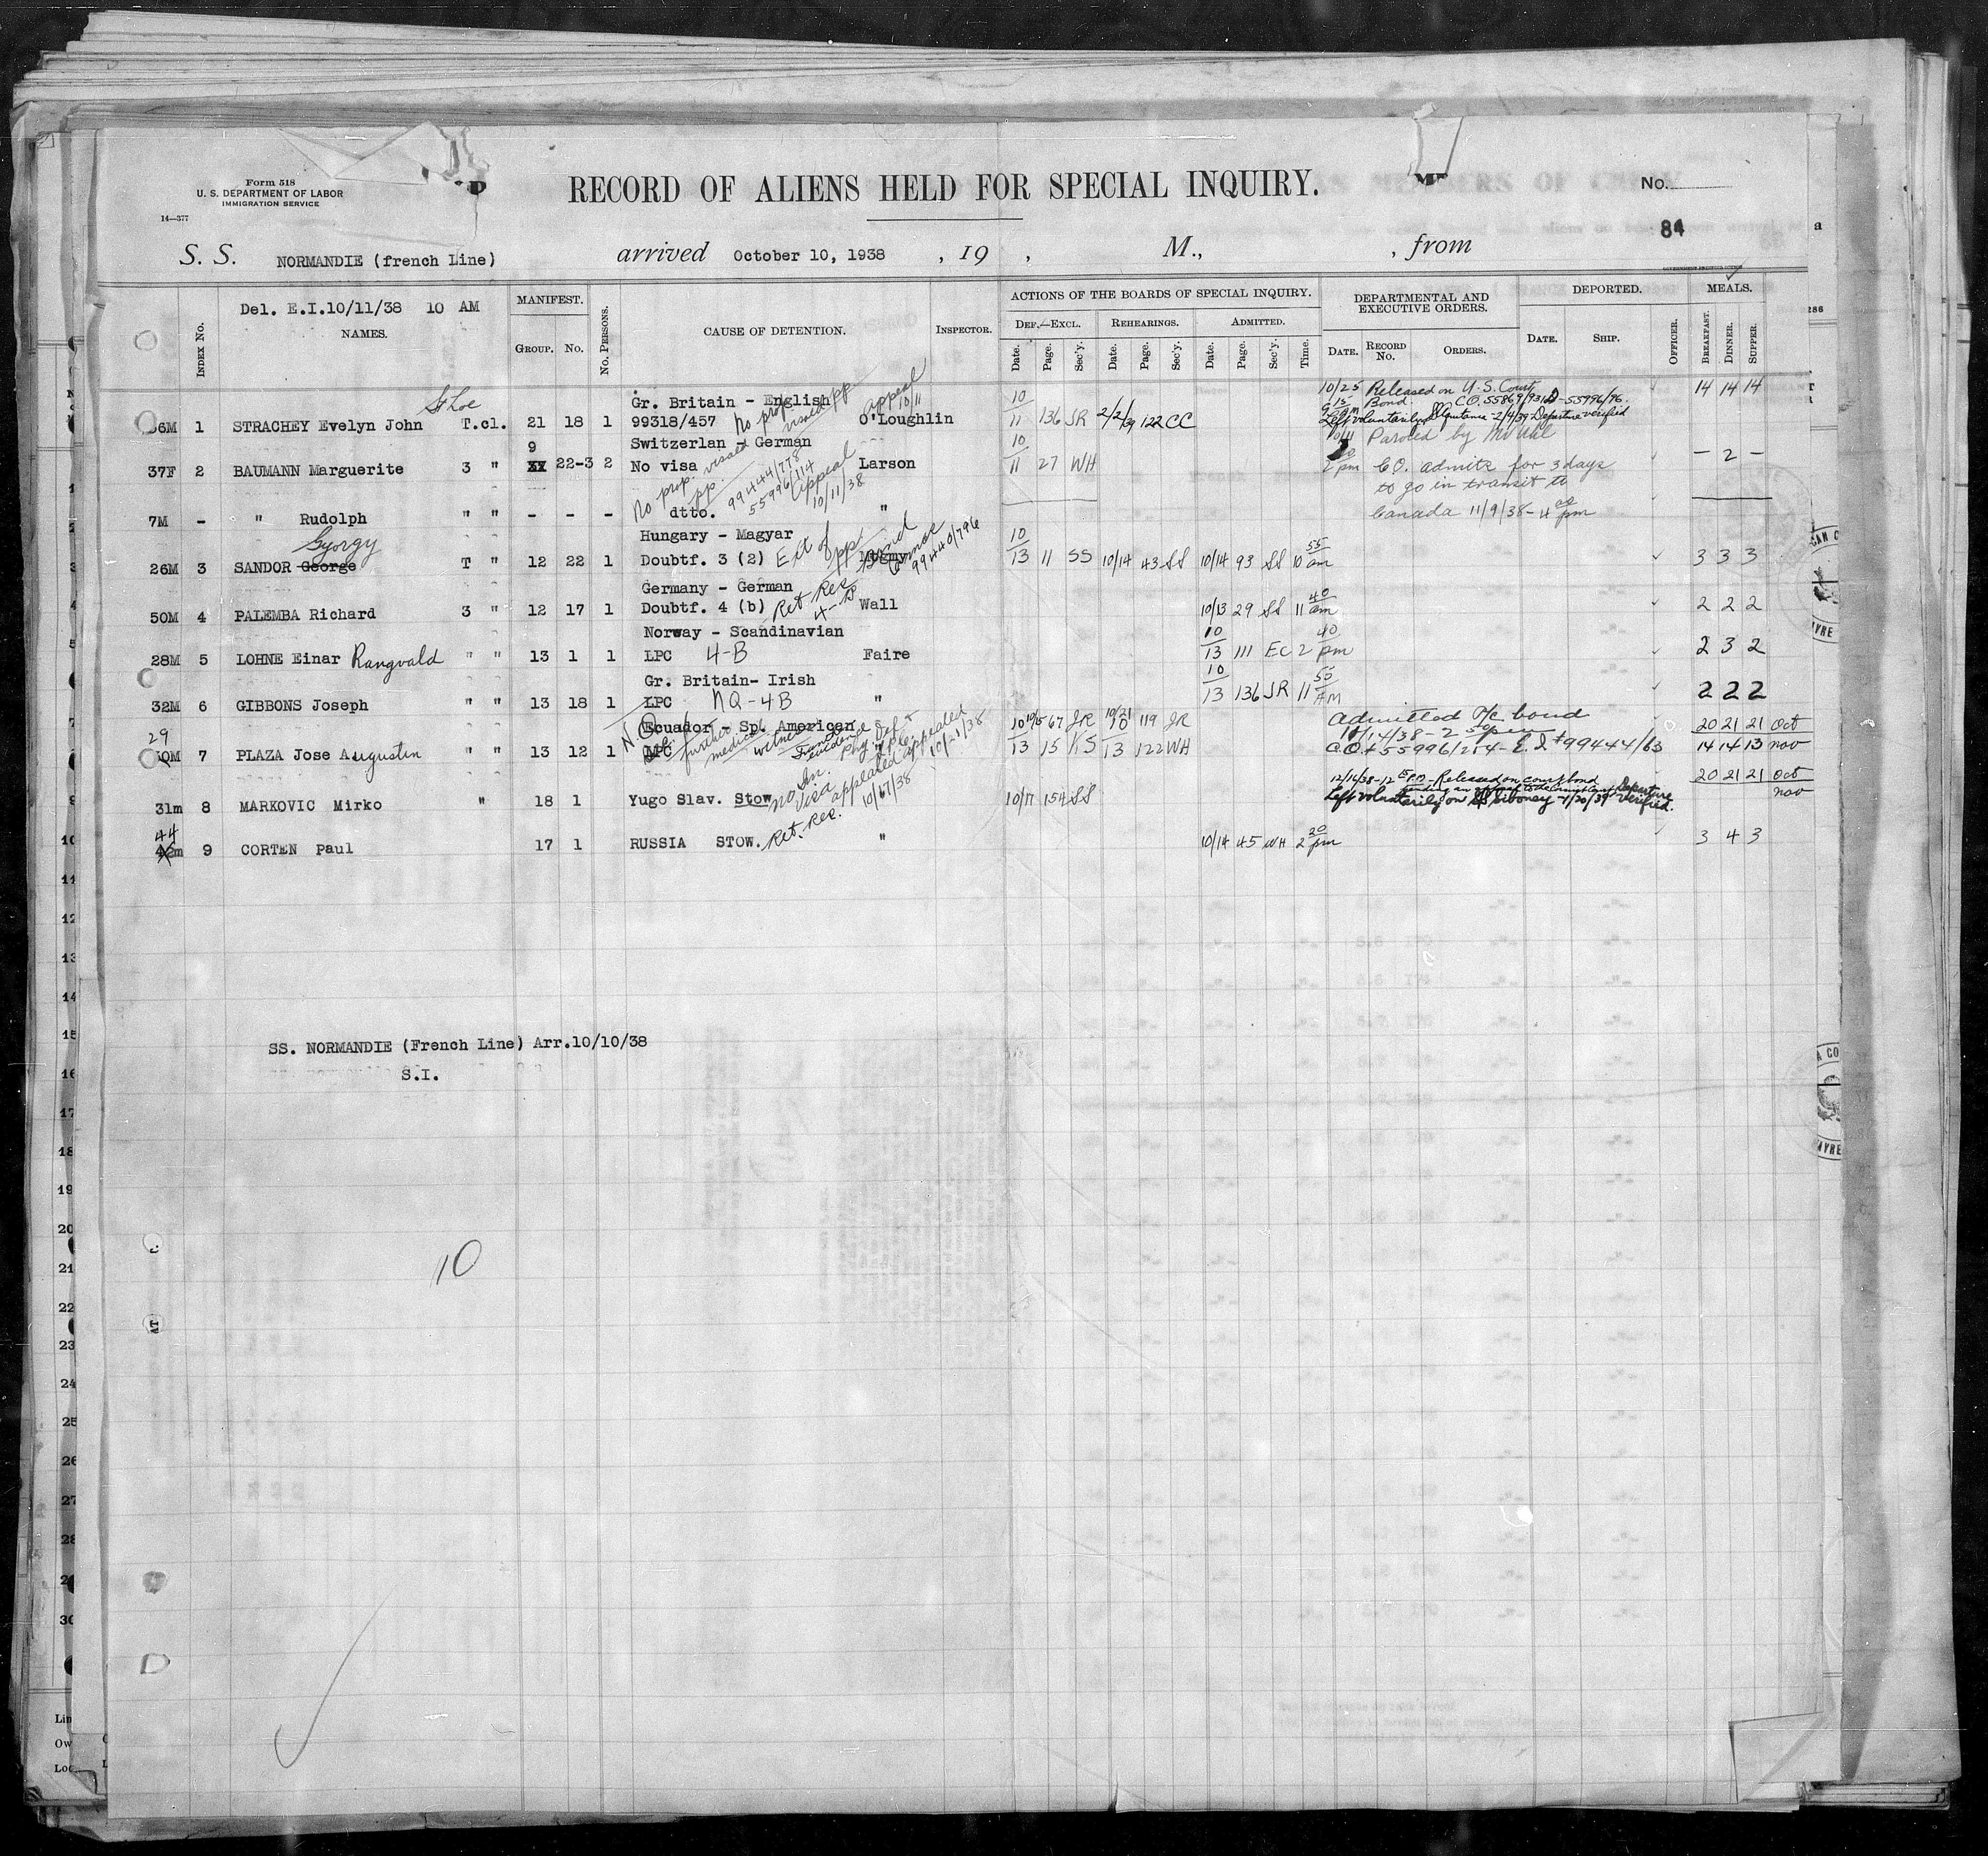 Form 518
U. S. DEPARTMENT OF LABOR
IMMIGRATION SERVICE
14—377
RECORD OF ALIENS HELD FOR SPECIAL INQUIRY.
No.
84
S. S. NORMANDIE (french Line) arrived October 10, 1938 , 19 , M., , from
Del. E.I.10/11/38 10 AM
INDEX No. NAMES. MANIFEST. GROUP. No. No. PERSONS. CAUSE OF DETENTION. INSPECTOR.
ACTIONS OF THE BOARDS OF SPECIAL INQUIRY.
DEF.—EXCL. REHEARINGS. ADMITTED.
Date. Page. Sec'y. Date. Page. Sec'y. Date. Page. Sec'y. Time.
DEPARTMENTAL AND EXECUTIVE ORDERS.
DATE. RECORD No. ORDERS.
DEPORTED.
DATE. SHIP. OFFICER.
MEALS.
BREAKFAST. DINNER. SUPPER.
St Loe
Gr. Britain - English
6M 1 STRACHEY Evelyn John T.cl. 21 18 1 99318/457 No prop visaed pp appeal 10/11 O'Loughlin 10/11 136 SR 2/2/39 122 CC
10/25 Released on U.S. Court Bond. C.O. 55869/931D-55996/96. 14 14 14
Left voluntarily SS Aquitania - 2/4/39 Departure verified
Switzerlan - German
37F 2 BAUMANN Marguerite 3 " 9 22-3 2 No visa Larson 10/11 27 WH
No prop. visaed pp. 99444/778 55996/114 Appeal 10/11/38
10/11 Paroled by Mr Uhl
2 pm C.O. admits for 3 days - 2 -
to go in transit to
Canada 11/9/38 - 4 00 pm
7M - " Rudolph " " - - - dtto. "
Gyorgy
Hungary - Magyar
26M 3 SANDOR George T " 12 22 1 Doubtf. 3 (2) Ext of pp. 99440/796 10/13 11 SS 10/14 43 SS 10/14 93 SS 10 55 am 3 3 3
Germany - German
50M 4 PALEMBA Richard 3 " 12 17 1 Doubtf. 4 (b) Ret Res 4-B Wall 10/13 29 SS 11 40 am 2 2 2
Norway - Scandinavian
28M 5 LOHNE Einar Rangvald " " 13 1 1 LPC 4-B Faire 10/13 111 EC 2 40 pm 2 3 2
Gr. Britain- Irish
32M 6 GIBBONS Joseph " " 13 18 1 LPC NQ-4B " 10/13 136 JR 11 55 AM 2 2 2
29
Ecuador - Sp. American
0M 7 PLAZA Jose Augustin " " 13 12 1 LPC 10/13 15 KS 10/15 67 JR 10/21 119 JR 13 122 WH
further medical witness evidence appealed 10/21/38
Admitted o/c bond
11/14/38 - 2 50 pm
C.O. # 55996/214 - E.I # 99444/63
20 21 21 Oct
14 14 13 nov
31m 8 MARKOVIC Mirko " 18 1 Yugo Slav. Stow No In. Visa appealed 10/17/38 10/17 154 SS
12/14/38 - Released on court bond
pending an appeal to
Left voluntarily on SS Siboney - 1/20/39 Departure verified.
20 21 21 Oct
nov
44
9 CORTEN Paul 17 1 RUSSIA STOW. Ret. Res. " 10/14 45 WH 2 20 pm 3 4 3
SS. NORMANDIE (French Line) Arr.10/10/38
S.I.
10
10
11
12
13
14
15
16
17
18
19
20
21
22
23
24
25
26
27
28
30